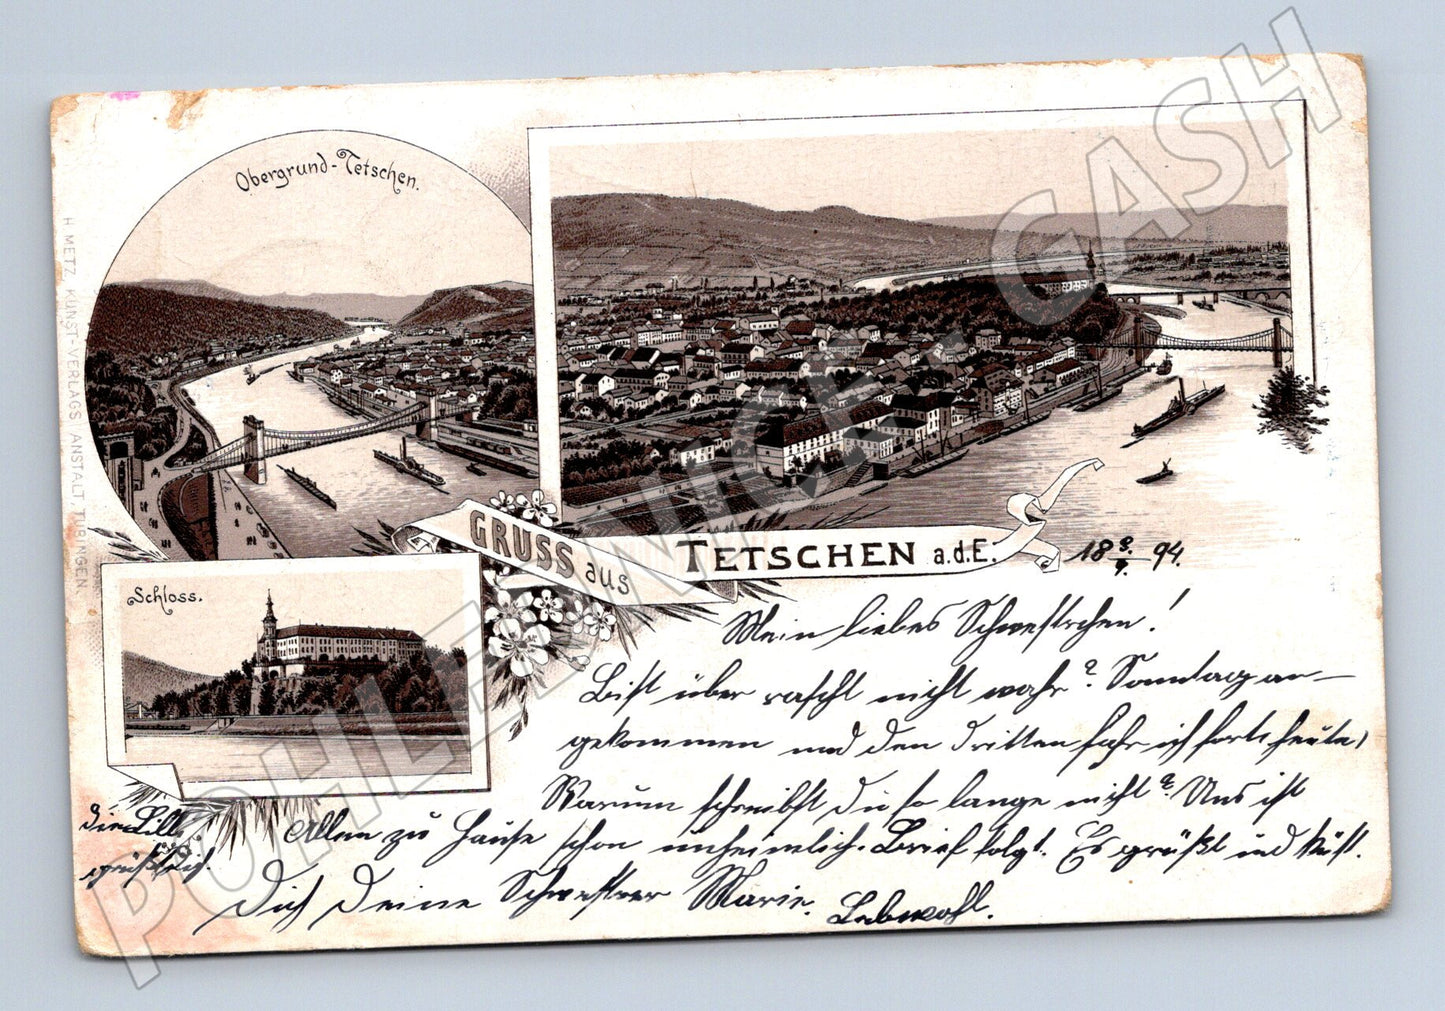 Obergrund-Tetschen.
H. METZ, KUNST-VERLAGS-ANSTALT, TÜBINGEN.
Schloss.
GRUSS aus TETSCHEN a.d.E.
18 8./9. 94.
Mein liebes Schwesterchen!
Bist über rascht nicht wahr? Sonntag an-
gekommen und den dritten fahr ich fort heute,
Warum schreibst du so lange nicht? Uns ist
Allen zu Hause schon unheimlich. Brief folgt. Es grüßt und küßt.
Dich Deine Schwester Marie. Lebwohl.
die Lilli
grüßt Dich.
POHLEDNICE - CASH